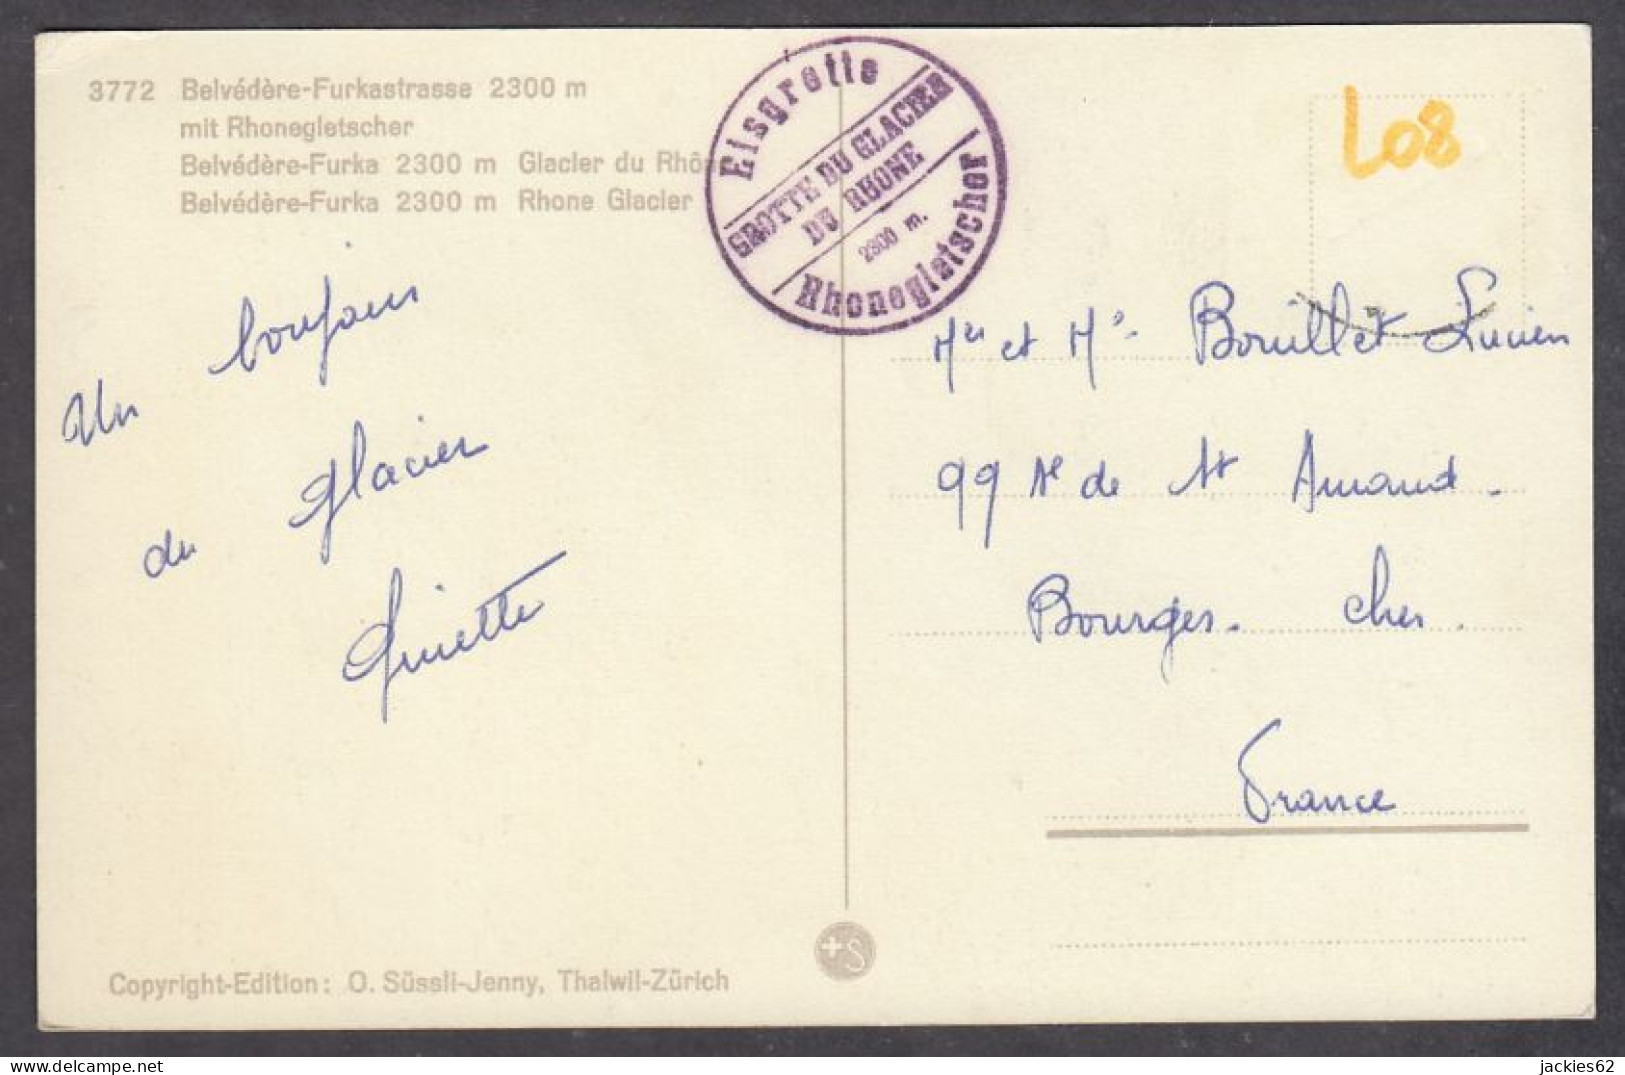 3772 Belvédère-Furkastrasse 2300 m
mit Rhonegletscher
Belvédère-Furka 2300 m Glacier du Rhône
Belvédère-Furka 2300 m Rhone Glacier
Eisgrotte
GROTTE DU GLACIER
DU RHONE
2300 m.
Rhonegletscher
L08
Un bonjour
du glacier
Ginette
Mr et Me Bouillet Lucien
99 Ae de St Amand.
Bourges. Cher.
France
Copyright-Edition: O. Süssli-Jenny, Thalwil-Zürich
+S
jackies62